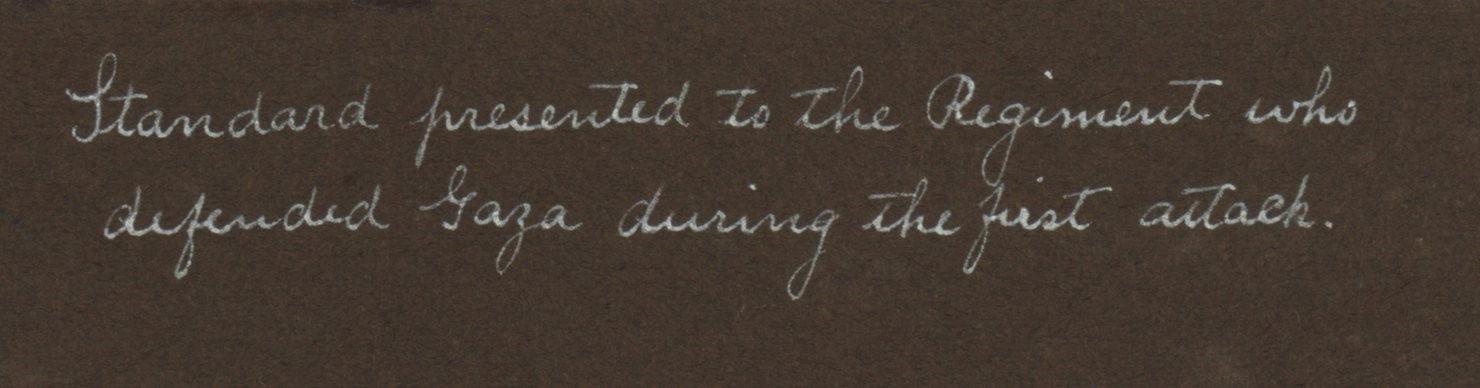 Standard presented to the Regiment who
defended Gaza during the first attack.